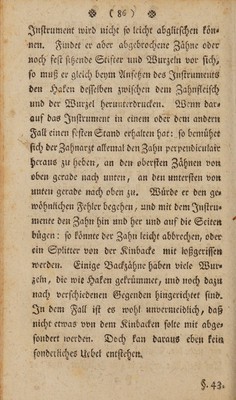 ( 86 )
Instrument wird nicht so leicht abglitschen kön-
nen. Findet er aber abgebrochene Zähne oder
noch fest sitzende Stifter und Wurzeln vor sich,
so muß er gleich beym Ansetzen des Instruments
den Haken desselben zwischen dem Zahnfleisch
und der Wurzel herunterdrucken. Wenn dar-
auf das Instrument in einem oder dem andern
Fall einen festen Stand erhalten hat: so bemühet
sich der Zahnarzt allemal den Zahn perpendiculair
heraus zu heben, an den obersten Zähnen von
oben gerade nach unten, an den untersten von
unten gerade nach oben zu. Würde er den ge-
wöhnlichen Fehler begehen, und mit dem Instru-
mente den Zahn hin und her und auf die Seiten
bügen: so könnte der Zahn leicht abbrechen, oder
ein Splitter von der Kinbacke mit loßgerissen
werden. Einige Backzähne haben viele Wur-
zeln, die wie Haken gekrümmet, und noch dazu
nach verschiedenen Gegenden hingerichtet sind.
In dem Fall ist es wohl unvermeidlich, daß
nicht etwas von dem Kinbacken solte mit abge-
sondert werden. Doch kan daraus eben kein
sonderliches Uebel entstehen.
§. 43.